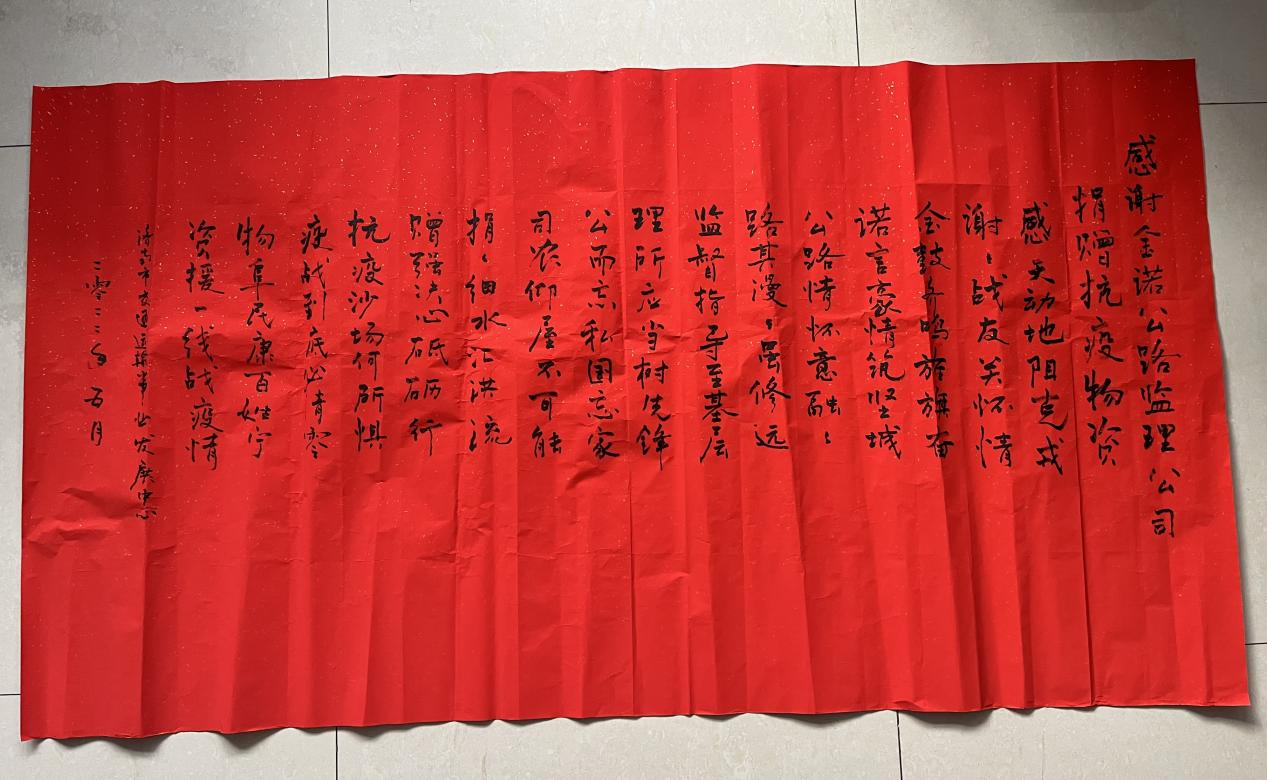 感谢金诺公路监理公司
捐赠抗疫物资
感天动地阻克戎
谢〻战友关怀情
金鼓齐鸣旌旗奋
诺言豪情筑坚城
公路情怀意融〻
路其漫〻虽修远
监督指导至基层
理所应当树先锋
公而忘私国忘家
司农仰屋不可能
捐〻细水汇洪流
赠强决心砥砺行
抗疫沙场何所惧
疫战到底必清零
物阜民康百姓宁
资援一线战疫情
市交通运输事业发展中心
二零二二年五月